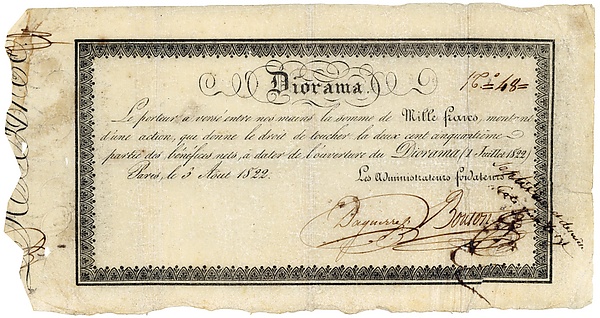 Diorama.
N.º 48=
Le porteur a versé entre nos mains la somme de Mille francs, mont.nt
d'une action, que donne le droit de toucher la deux cent cinquantième
partie des bénéfices nets, à dater de l'ouverture du Diorama (1 Juillet 1822)
Paris, le 3 Août 1822.
Les Administrateurs fondateurs
Daguerre Bouton